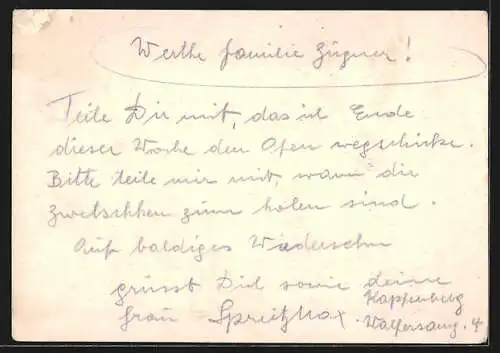 Werthe familie Zügner!
Teile Dir mit, das ich Ende
dieser Woche den Ofen wegschicke.
Bitte teile mir mit, wann die
Zwetschken zum holen sind.
Auf baldiges Wiedersehn
grüsst Dich sowie deine
frau Spreitz Max. Kapfenberg
4